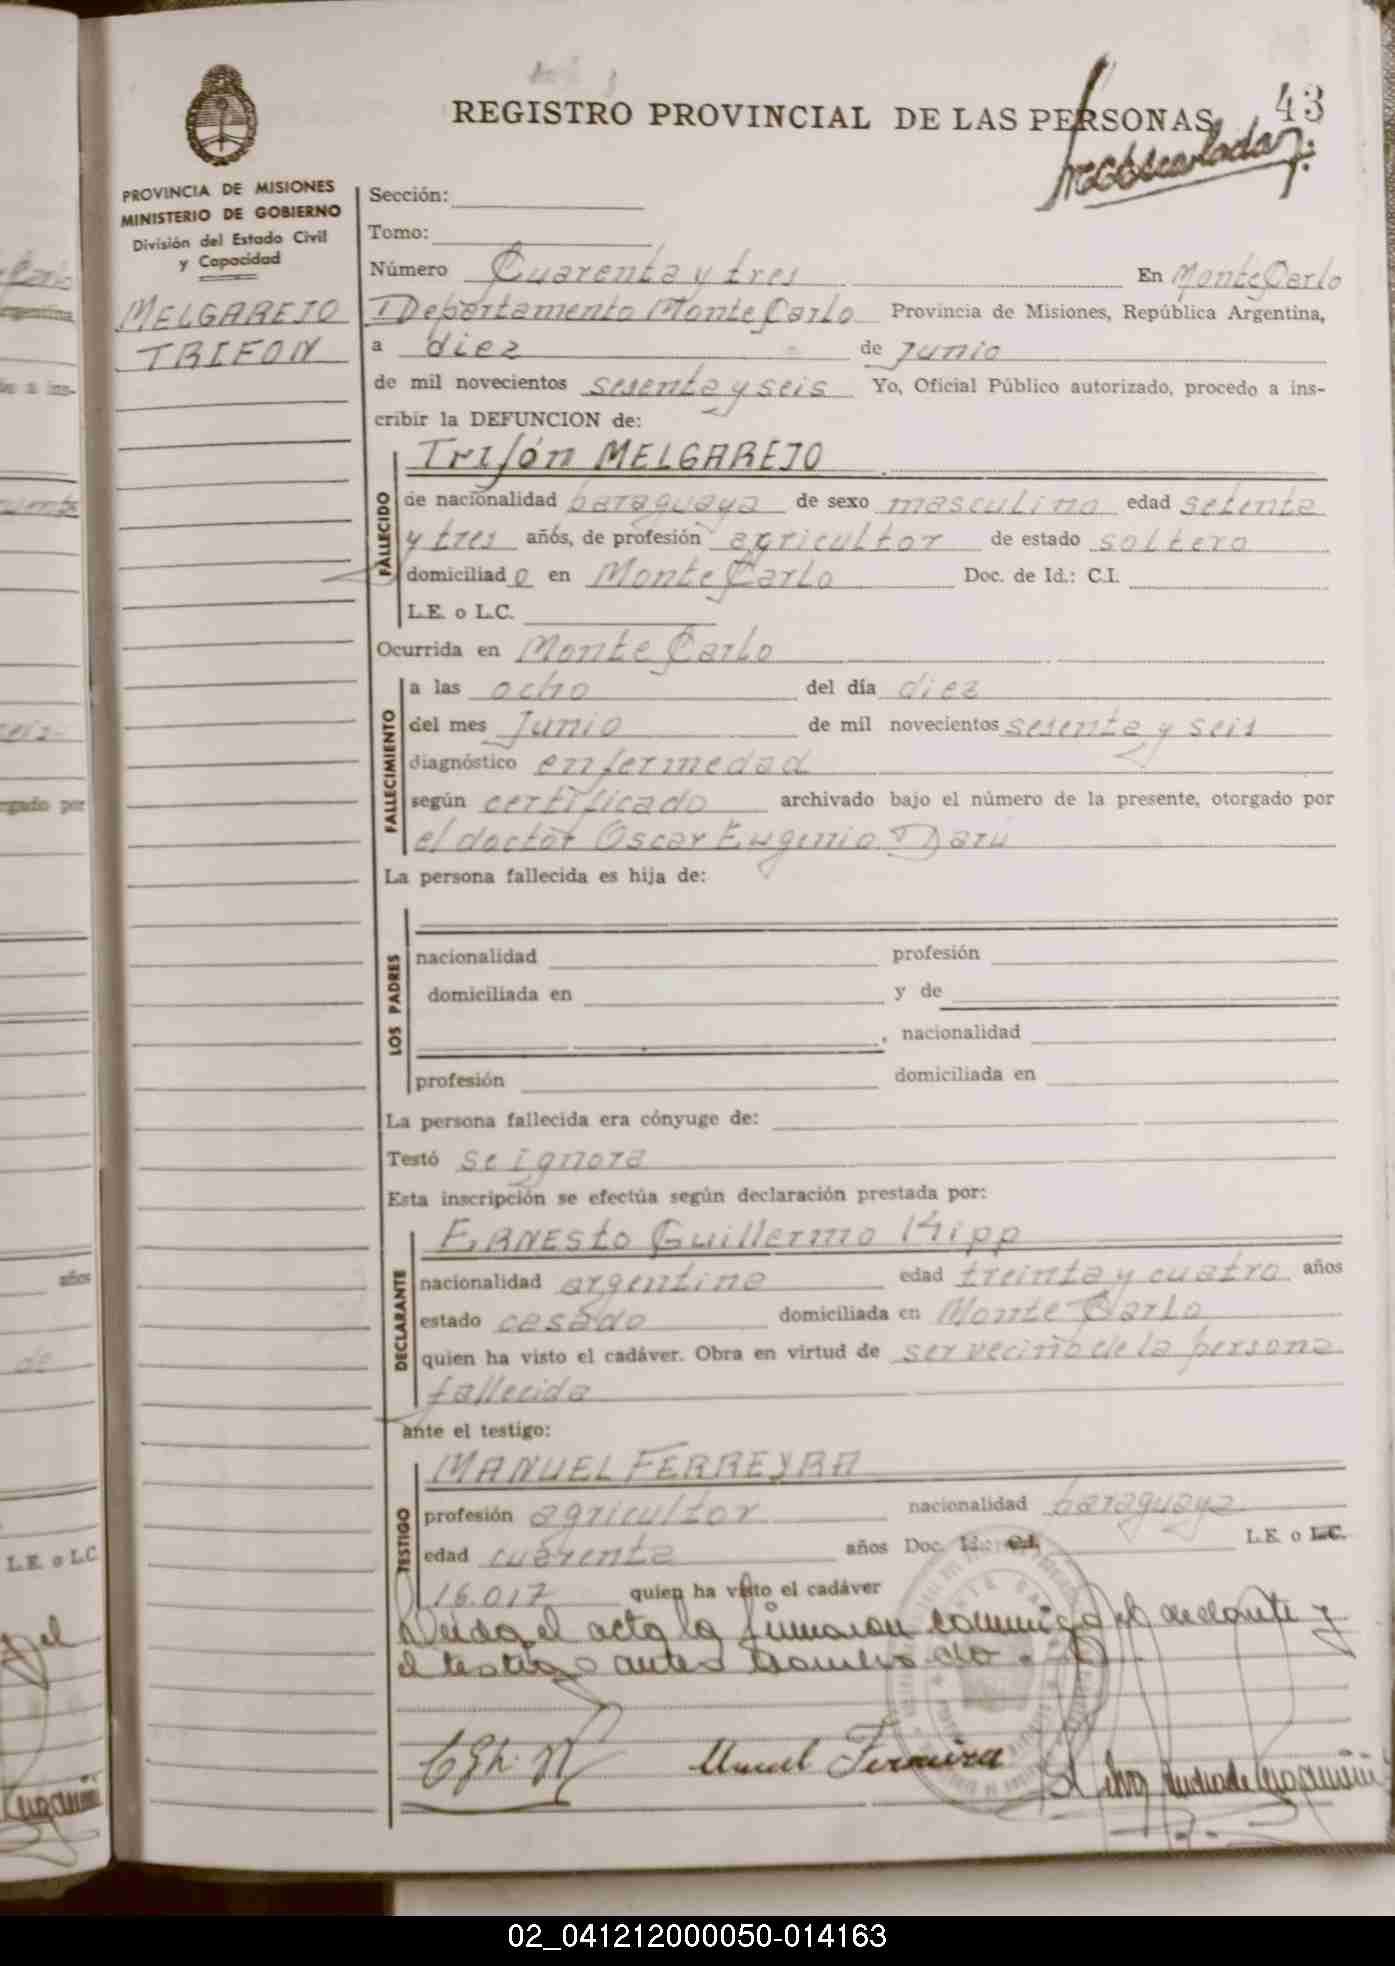 REGISTRO PROVINCIAL DE LAS PERSONAS
43
PROVINCIA DE MISIONES
MINISTERIO DE GOBIERNO
División del Estado Civil
y Capacidad
MELGAREJO
TRIFON
Sección:
Tomo:
Número Cuarenta y tres En Monte Carlo
Departamento Monte Carlo Provincia de Misiones, República Argentina,
a diez de Junio
de mil novecientos sesenta y seis Yo, Oficial Público autorizado, procedo a ins-
cribir la DEFUNCION de:
FALLECIDO
Trifón MELGAREJO
de nacionalidad paraguaya de sexo masculino edad setenta
y tres años, de profesión agricultor de estado soltero
domiciliado en Monte Carlo Doc. de Id.: C.I.
L.E. o L.C.
Ocurrida en Monte Carlo
FALLECIMIENTO
a las ocho del día diez
del mes Junio de mil novecientos sesenta y seis
diagnóstico enfermedad
según certificado archivado bajo el número de la presente, otorgado por
el doctor Oscar Eugenio Darú
La persona fallecida es hija de:
LOS PADRES
nacionalidad profesión
domiciliada en y de
, nacionalidad
profesión domiciliada en
La persona fallecida era cónyuge de:
Testó se ignora
Esta inscripción se efectúa según declaración prestada por:
DECLARANTE
ERNESTO Guillermo Kipp
nacionalidad argentina edad treinta y cuatro años
estado casado domiciliada en Monte Carlo
quien ha visto el cadáver. Obra en virtud de ser vecino de la persona
fallecida
ante el testigo:
TESTIGO
MANUEL FERREYRA
profesión agricultor nacionalidad paraguaya
edad cuarenta años Doc. Id.: C.I. L.E. o L.C.
16.017 quien ha visto el cadáver
Leida el acta la firmaron conmigo el declarante y
el testigo antes nombrado.
Manuel Ferreira
02_041212000050-014163